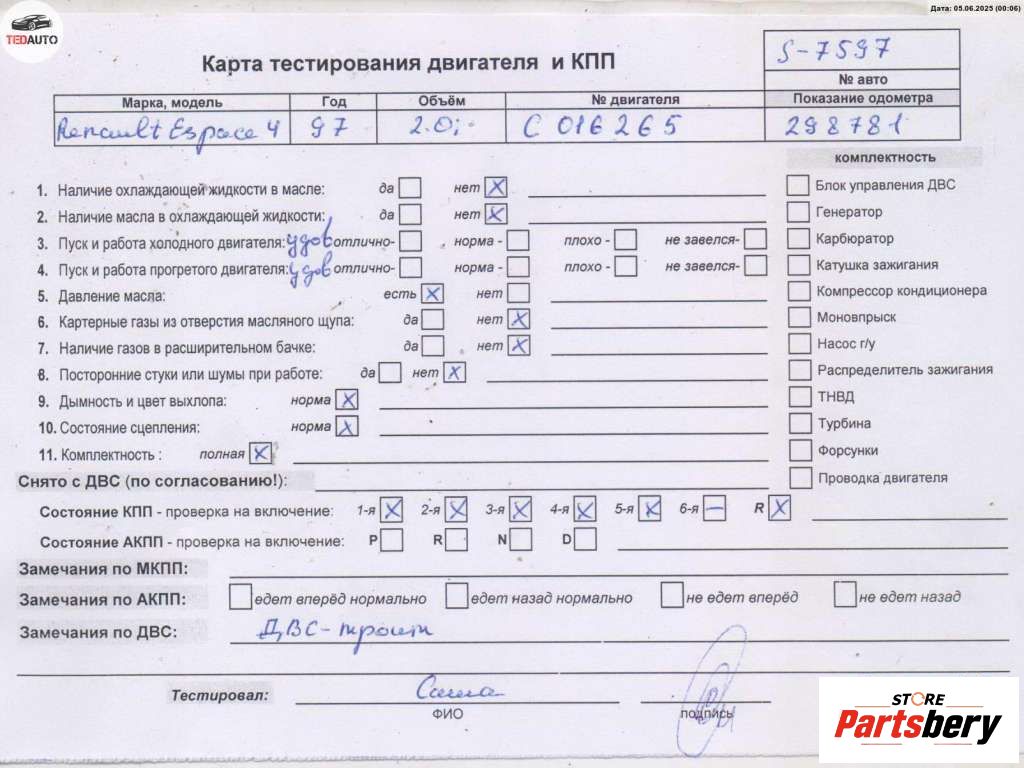 Дата: 05.06.2025 (00:06)
TEDAUTO
Карта тестирования двигателя и КПП
S-7597
№ авто
Марка, модель Год Объём № двигателя Показание одометра
Renault Espace 4 97 2.0i C 016265 298781
комплектность
1. Наличие охлаждающей жидкости в масле: да нет X
Блок управления ДВС
2. Наличие масла в охлаждающей жидкости: да нет X
Генератор
3. Пуск и работа холодного двигателя: удов отлично- норма - плохо - не завелся-
Карбюратор
4. Пуск и работа прогретого двигателя: удов отлично- норма - плохо - не завелся-
Катушка зажигания
5. Давление масла: есть X нет
Компрессор кондиционера
6. Картерные газы из отверстия масляного щупа: да нет X
Моновпрыск
7. Наличие газов в расширительном бачке: да нет X
Насос г/у
8. Посторонние стуки или шумы при работе: да нет X
Распределитель зажигания
9. Дымность и цвет выхлопа: норма X
ТНВД
10. Состояние сцепления: норма X
Турбина
11. Комплектность : полная X
Форсунки
Снято с ДВС (по согласованию!):
Проводка двигателя
Состояние КПП - проверка на включение: 1-я X 2-я X 3-я X 4-я X 5-я X 6-я – R X
Состояние АКПП - проверка на включение: P R N D
Замечания по МКПП:
Замечания по АКПП: едет вперёд нормально едет назад нормально не едет вперёд не едет назад
Замечания по ДВС: ДВС-троит
Тестировал: Саша
ФИО подпись
STORE
Partsbery